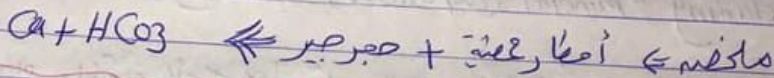 ملخص ⇐ أمطار حمضية + حجر جير ⇐ Ca + HCO3